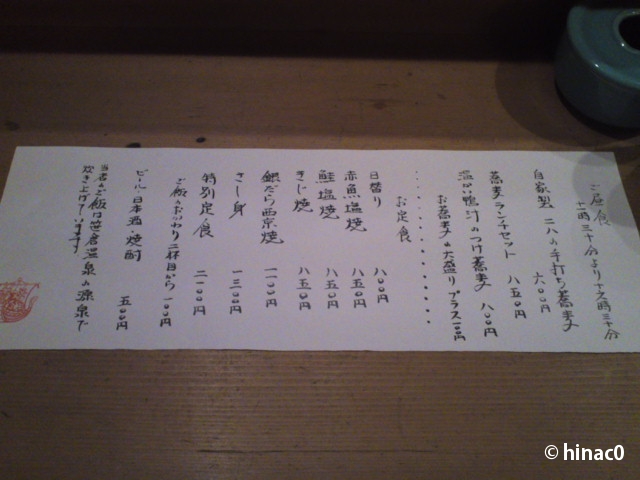 ご昼食
十一時三十分より十六時三十分
自家製 二八の手打ち蕎麦 六〇〇円
蕎麦ランチセット 八五〇円
温かい鴨汁のつけ蕎麦 八〇〇円
お蕎麦の大盛り プラス一〇〇円
お定食
日替り 八〇〇円
赤魚塩焼 八五〇円
鮭塩焼 八五〇円
きじ焼 八五〇円
銀だら西京焼 一一〇〇円
さし身 一三〇〇円
特別定食 二一〇〇円
ご飯のおかわり二杯目から 一〇〇円
ビール・日本酒・焼酎 五〇〇円
当店のご飯は笹倉温泉の源泉で
炊き上げています
© hinac0